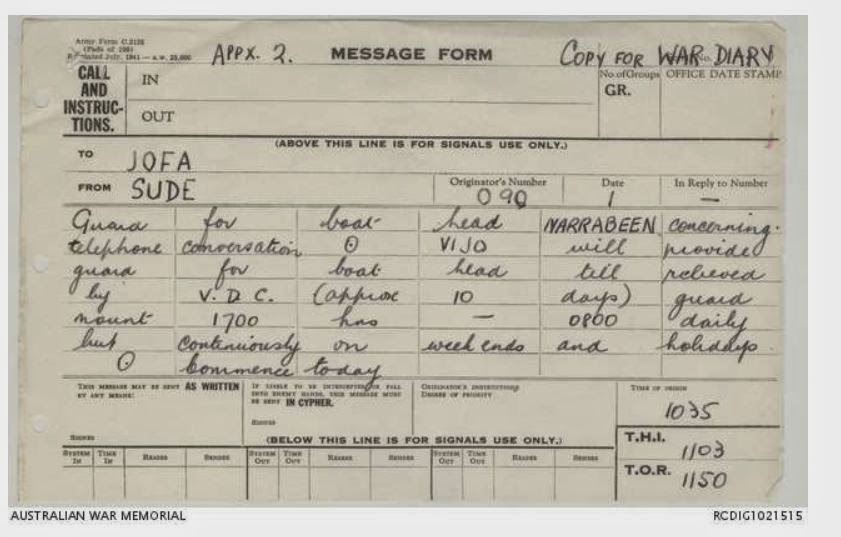 Army Form C.2128
(Pads of 100)
July, 1941 — A.W. 25,000
APPX. 2. MESSAGE FORM COPY FOR WAR DIARY
CALL AND INSTRUC-TIONS. IN No. of Groups OFFICE DATE STAMP
GR.
OUT
(ABOVE THIS LINE IS FOR SIGNALS USE ONLY.)
TO JOFA
FROM SUDE Originator's Number 090 Date 1 In Reply to Number —
Guard for boat head NARRABEEN concerning
telephone conversation ⊙ VIJO will provide
guard for boat head till relieved
by V.D.C. (approx 10 days) guard
mount 1700 hrs — 0800 daily
but continuously on week ends and holidays
⊙ Commence today
THIS MESSAGE MAY BE SENT AS WRITTEN BY ANY MEANS: IF LIABLE TO BE INTERCEPTED OR FALL INTO ENEMY HANDS, THIS MESSAGE MUST BE SENT IN CYPHER. ORIGINATOR'S INSTRUCTIONS DEGREE OF PRIORITY TIME OF ORIGIN
1035
SIGNED SIGNED
(BELOW THIS LINE IS FOR SIGNALS USE ONLY.) T.H.I.
1103
SYSTEM IN TIME IN READER SENDER SYSTEM OUT TIME OUT READER SENDER SYSTEM OUT TIME OUT READER SENDER
T.O.R. 1150
AUSTRALIAN WAR MEMORIAL RCDIG1021515